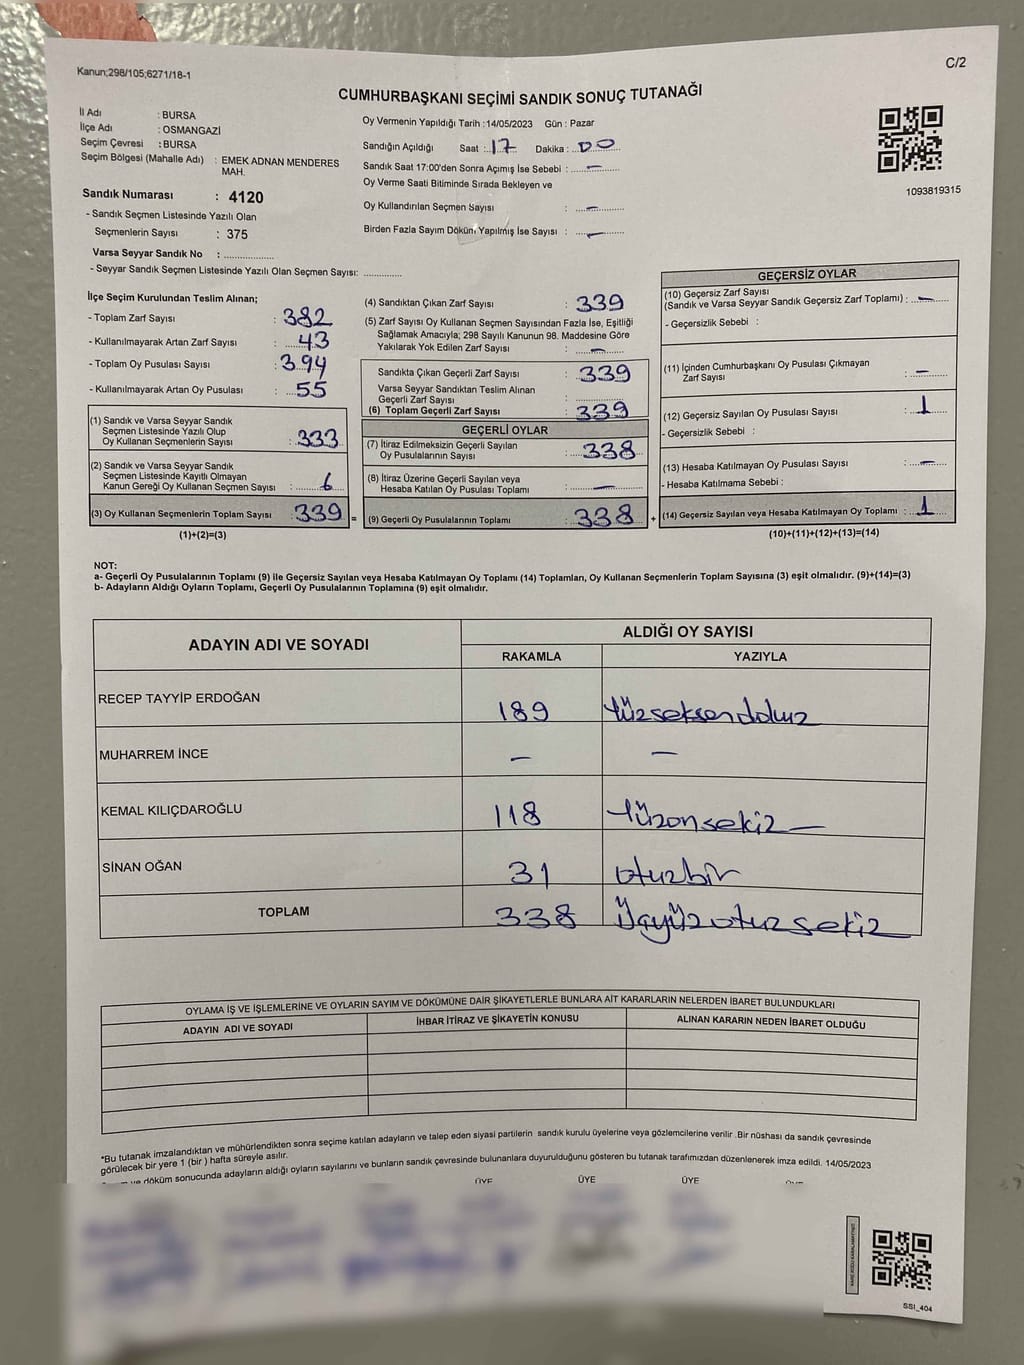 Kanun;298/105;6271/18-1
C/2
CUMHURBAŞKANI SEÇİMİ SANDIK SONUÇ TUTANAĞI
İl Adı : BURSA
İlçe Adı : OSMANGAZİ
Seçim Çevresi : BURSA
Seçim Bölgesi (Mahalle Adı) : EMEK ADNAN MENDERES
MAH.
Sandık Numarası : 4120
- Sandık Seçmen Listesinde Yazılı Olan
Seçmenlerin Sayısı : 375
Varsa Seyyar Sandık No : ................
- Seyyar Sandık Seçmen Listesinde Yazılı Olan Seçmen Sayısı: ............
Oy Vermenin Yapıldığı Tarih :14/05/2023 Gün : Pazar
Sandığın Açıldığı Saat : 17 Dakika : 00
Sandık Saat 17:00'den Sonra Açımış İse Sebebi : –
Oy Verme Saati Bitiminde Sırada Bekleyen ve
Oy Kullandırılan Seçmen Sayısı : –
Birden Fazla Sayım Dökünı Yapılmış İse Sayısı : –
1093819315
İlçe Seçim Kurulundan Teslim Alınan;
- Toplam Zarf Sayısı : 382
- Kullanılmayarak Artan Zarf Sayısı : 43
- Toplam Oy Pusulası Sayısı : 394
- Kullanılmayarak Artan Oy Pusulası : 55
(1) Sandık ve Varsa Seyyar Sandık
Seçmen Listesinde Yazılı Olup
Oy Kullanan Seçmenlerin Sayısı : 333
(2) Sandık ve Varsa Seyyar Sandık
Seçmen Listesinde Kayıtlı Olmayan
Kanun Gereği Oy Kullanan Seçmen Sayısı : 6
(3) Oy Kullanan Seçmenlerin Toplam Sayısı : 339 =
(1)+(2)=(3)
(4) Sandıktan Çıkan Zarf Sayısı : 339
(5) Zarf Sayısı Oy Kullanan Seçmen Sayısından Fazla İse, Eşitliği
Sağlamak Amacıyla; 298 Sayılı Kanunun 98. Maddesine Göre
Yakılarak Yok Edilen Zarf Sayısı : –
Sandıkta Çıkan Geçerli Zarf Sayısı : 339
Varsa Seyyar Sandıktan Teslim Alınan
Geçerli Zarf Sayısı : ................
(6) Toplam Geçerli Zarf Sayısı : 339
GEÇERLİ OYLAR
(7) İtiraz Edilmeksizin Geçerli Sayılan
Oy Pusulalarının Sayısı : 338
(8) İtiraz Üzerine Geçerli Sayılan veya
Hesaba Katılan Oy Pusulası Toplamı : –
(9) Geçerli Oy Pusulalarının Toplamı : 338 +
GEÇERSİZ OYLAR
(10) Geçersiz Zarf Sayısı
(Sandık ve Varsa Seyyar Sandık Geçersiz Zarf Toplamı) : –
- Geçersizlik Sebebi :
(11) İçinden Cumhurbaşkanı Oy Pusulası Çıkmayan
Zarf Sayısı : –
(12) Geçersiz Sayılan Oy Pusulası Sayısı : 1
- Geçersizlik Sebebi :
(13) Hesaba Katılmayan Oy Pusulası Sayısı : –
- Hesaba Katılmama Sebebi :
(14) Geçersiz Sayılan veya Hesaba Katılmayan Oy Toplamı : 1
(10)+(11)+(12)+(13)=(14)
NOT:
a- Geçerli Oy Pusulalarının Toplamı (9) ile Geçersiz Sayılan veya Hesaba Katılmayan Oy Toplamı (14) Toplamları, Oy Kullanan Seçmenlerin Toplam Sayısına (3) eşit olmalıdır. (9)+(14)=(3)
b- Adayların Aldığı Oyların Toplamı, Geçerli Oy Pusulalarının Toplamına (9) eşit olmalıdır.
ADAYIN ADI VE SOYADI ALDIĞI OY SAYISI
RAKAMLA YAZIYLA
RECEP TAYYİP ERDOĞAN 189 Yüzseksendokuz
MUHARREM İNCE – –
KEMAL KILIÇDAROĞLU 118 Yüzonsekiz –
SİNAN OĞAN 31 otuzbir
TOPLAM 338 Üçyüzotuzsekiz
OYLAMA İŞ VE İŞLEMLERİNE VE OYLARIN SAYIM VE DÖKÜMÜNE DAİR ŞİKAYETLERLE BUNLARA AİT KARARLARIN NELERDEN İBARET BULUNDUKLARI
ADAYIN ADI VE SOYADI İHBAR İTİRAZ VE ŞİKAYETİN KONUSU ALINAN KARARIN NEDEN İBARET OLDUĞU
*Bu tutanak imzalandıktan ve mühürlendikten sonra seçime katılan adayların ve talep eden siyasi partilerin sandık kurulu üyelerine veya gözlemcilerine verilir .Bir nüshası da sandık çevresinde
görülecek bir yere 1 (bir ) hafta süreyle asılır.
ve döküm sonucunda adayların aldığı oyların sayılarını ve bunların sandık çevresinde bulunanlara duyurulduğunu gösteren bu tutanak tarafımızdan düzenlenerek imza edildi. 14/05/2023
ÜYE ÜYE ÜYE
SSI_404